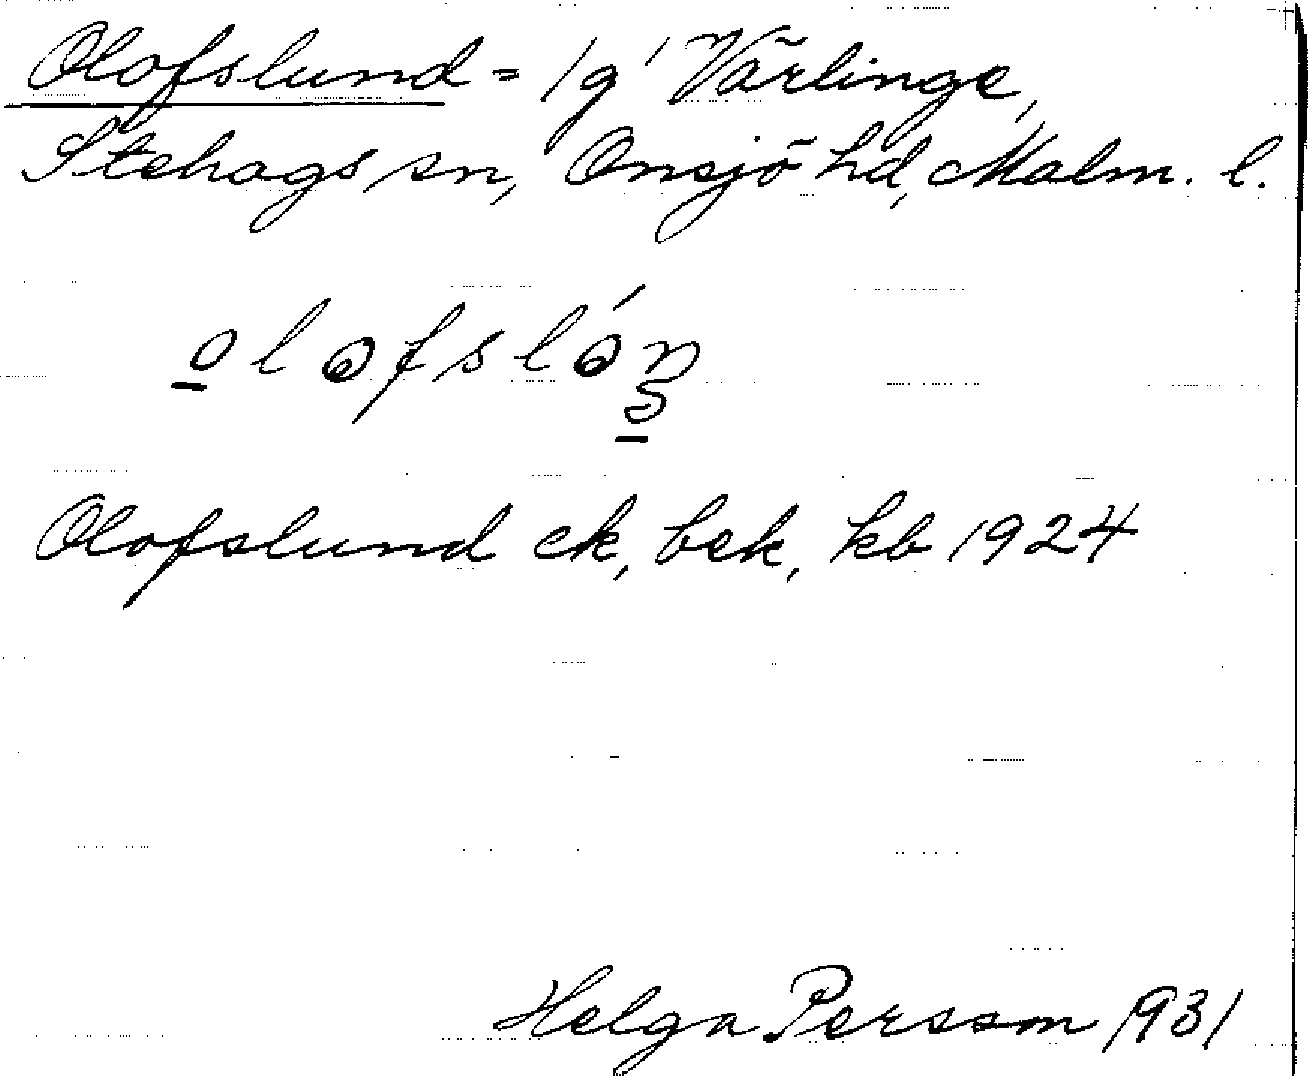 Olofslund = 1g i Värlinge,
Stehags sn, Onsjö hd, Malm. l.
olofslón
Olofslund ek, bek, kb 1924
Helga Persson 1931